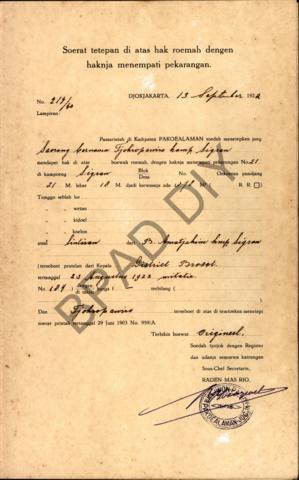 Soerat tetepan di atas hak roemah dengen
haknja menempati pekarangan.
DJOKJAKARTA, 13 September 192
No. 214/
Lampiran:
Pamarintah di Kadipaten PAKOEALAMAN soedah menetepken jang
Seorang bernama Tjokropawiro kamp Sigran
mendapet hak di atas boewah roemah, dengen haknja menempati pekarangan No. 21
di kampoeng Sigran Blok Desa No. Oekoeran pandjang
21 M. lebar 18 M. djadi loewasnja ada M² R. R
Tangga sebelah lor
" " wetan
" " kidoel
" " koelon
asal dari B. Amatjakim kamp Sigran
(terseboet pratelan dari Kapala District
tertanggal 23 Augustus 1922
No. 184) dengen harga f terbilang (
Dan Tjokropawiro terseboet di atas di tentoeken menetepi
soerat printah tertanggal 29 Juni 1903 No. 959/A.
Terbikin boewat Origineel
Soedah tjotjok dengen Register
dan adanja semoewa katrangan
Sous-Chef Secretarie,
RADEN MAS RIO.
BPAD DIY